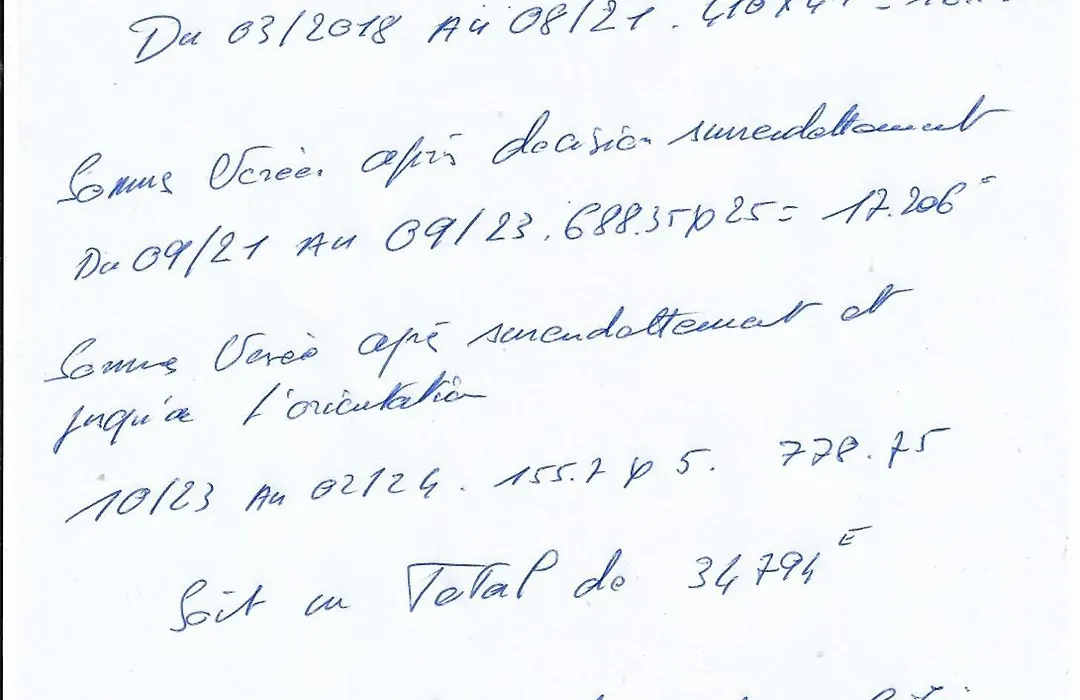 Du 03/2018 Au 08/21. 410 x 41 =
Somme Versée après decision surrendettement
Du 09/21 Au 09/23. 688.35 x 25 = 17.206
Somme Versée après surendettement et
jusqu'a l'orientation
10/23 Au 02/24. 155.7 x 5. 778.75
Soit un Total de 34794 E